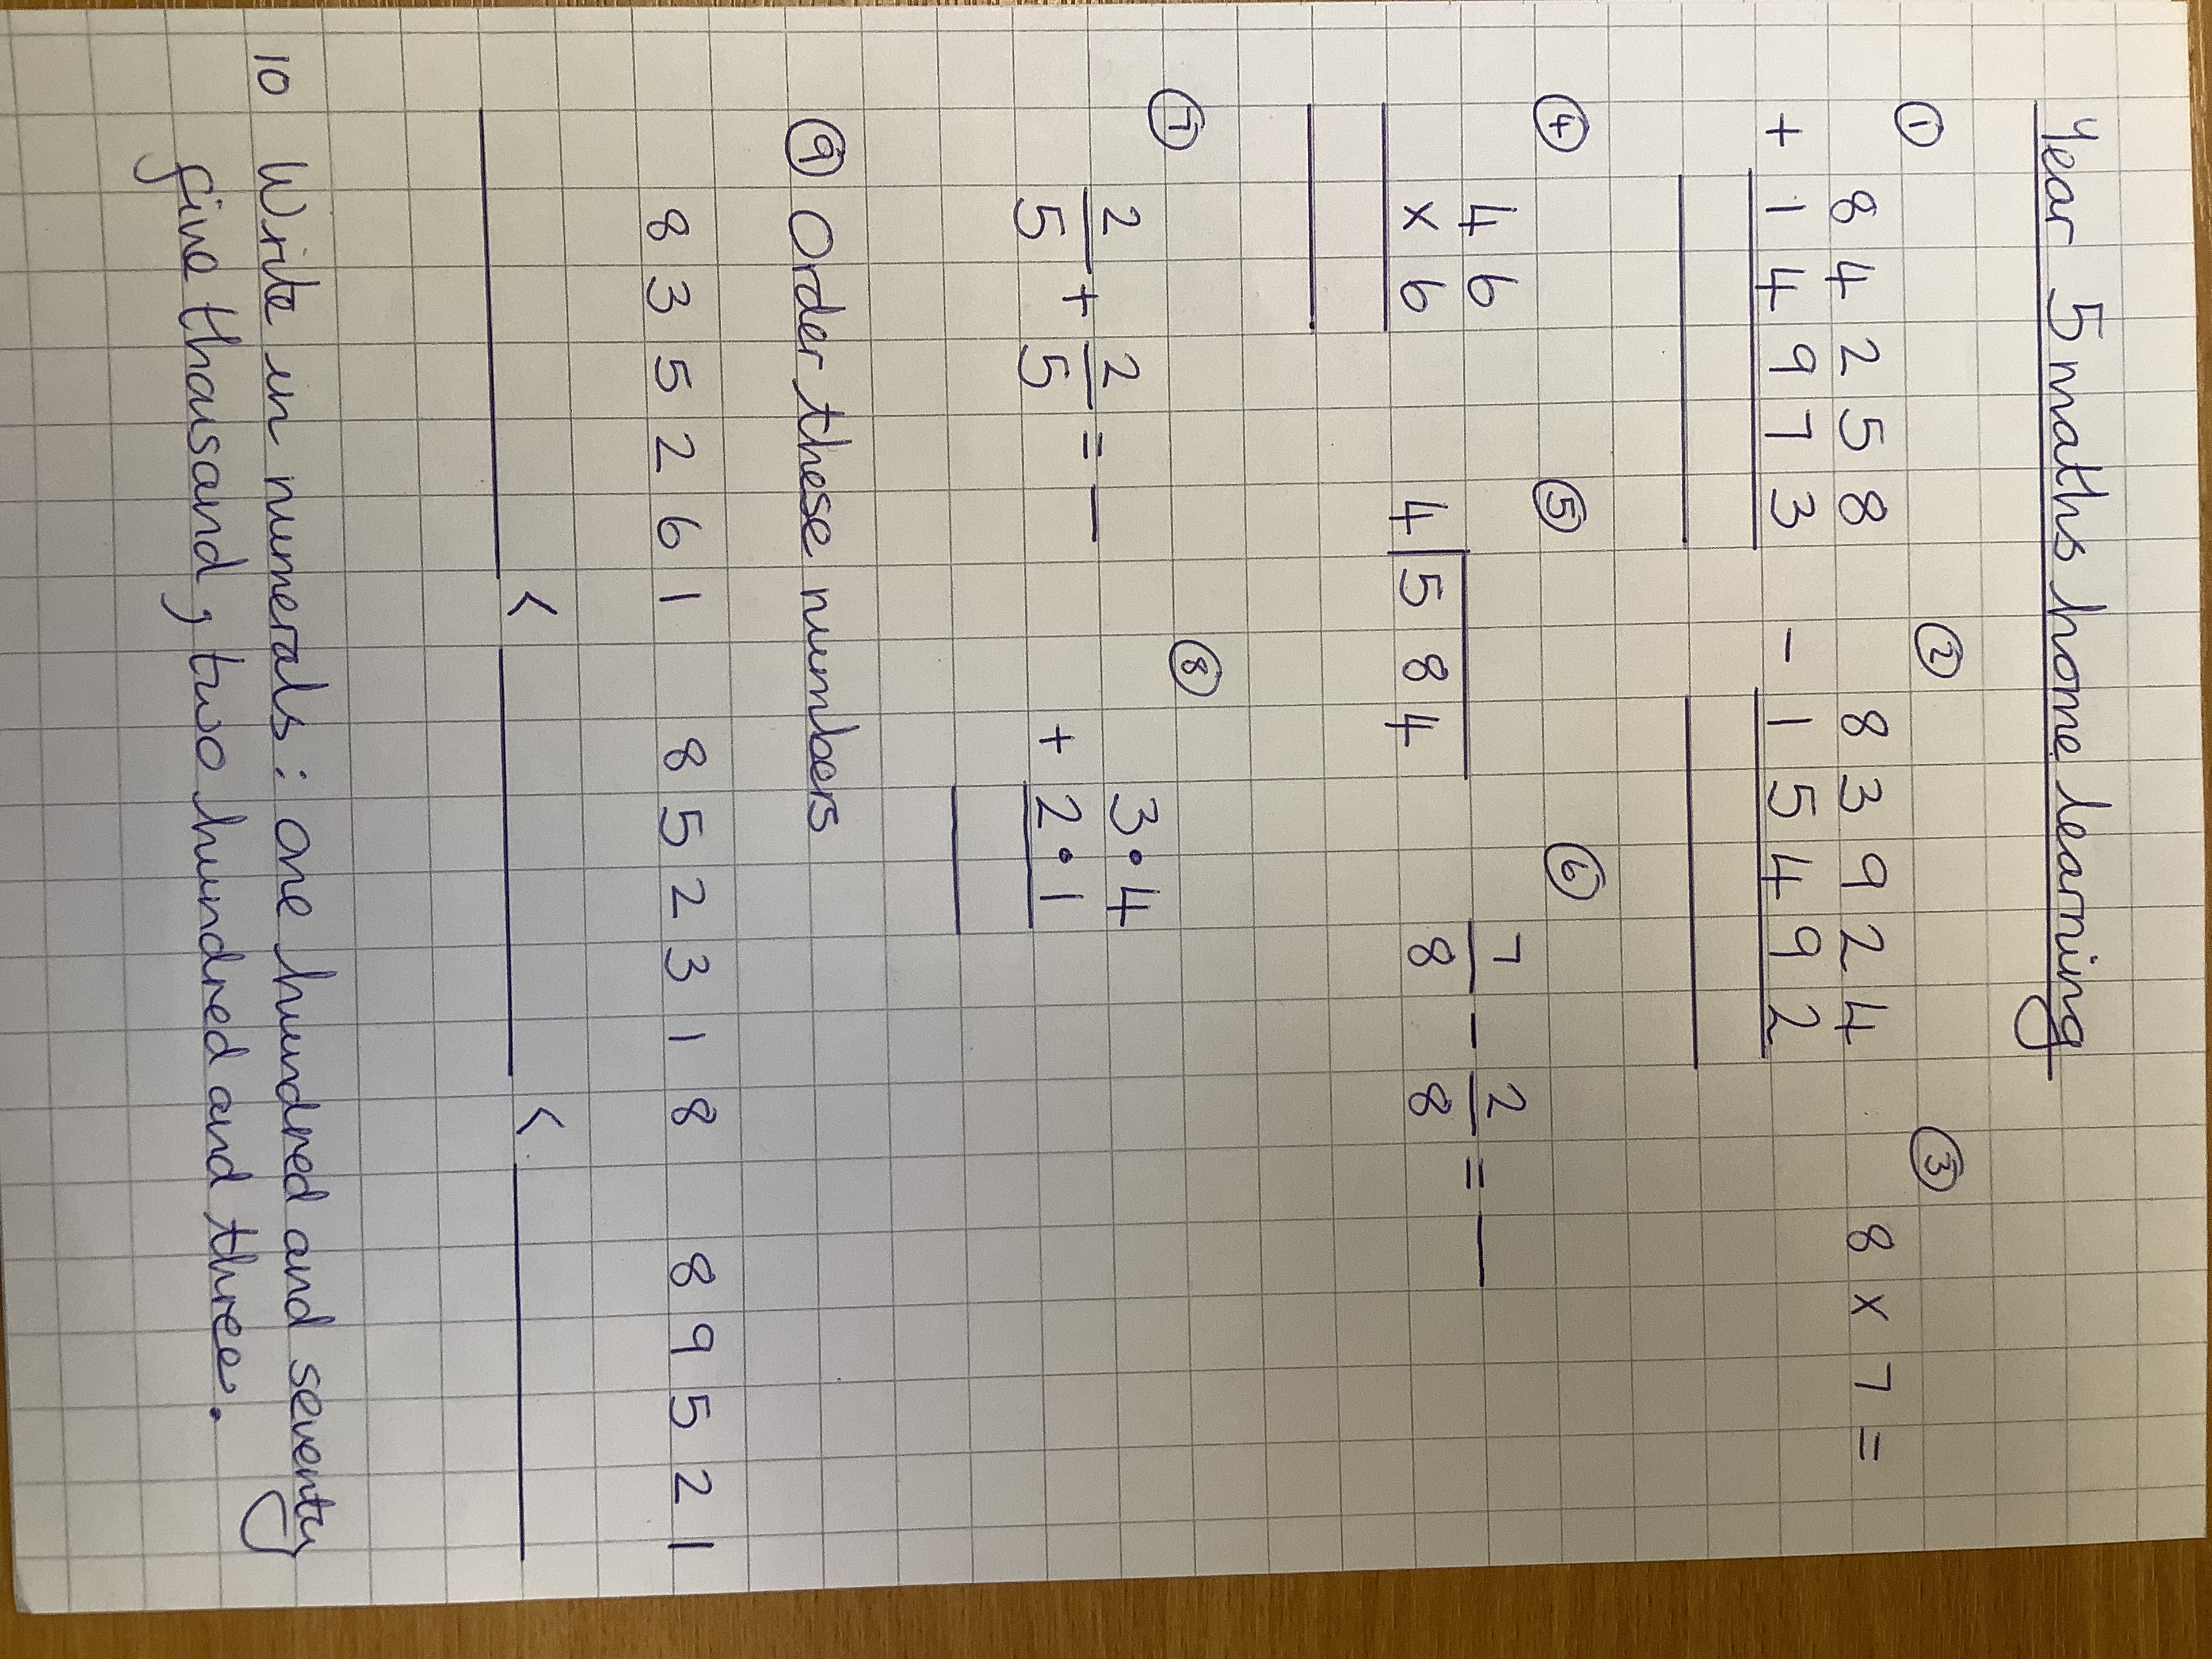 Year 5 maths home learning
① ② ③
84258 83924 8 x 7 =
+ 14973 - 15492
④ ⑤ ⑥
46 7/8 - 2/8 = —
x 6 4 584
⑦ ⑧
2/5 + 2/5 = — 3.4
+ 2.1
⑨ Order these numbers
835261 852318 89521
< <
10 Write in numerals : one hundred and seventy
five thousand, two hundred and three.